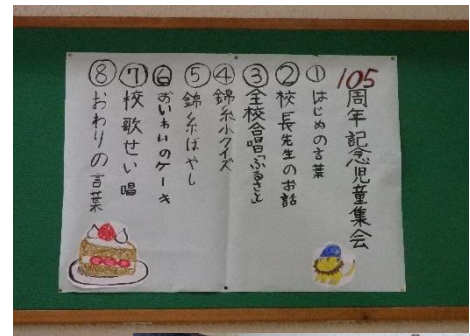 105周年記念児童集会
①はじめの言葉
②校長先生のお話
③全校合唱「ふるさと」
④錦糸小クイズ
⑤錦糸ばやし
⑥おいわいのケーキ
⑦校歌せい唱
⑧おわりの言葉